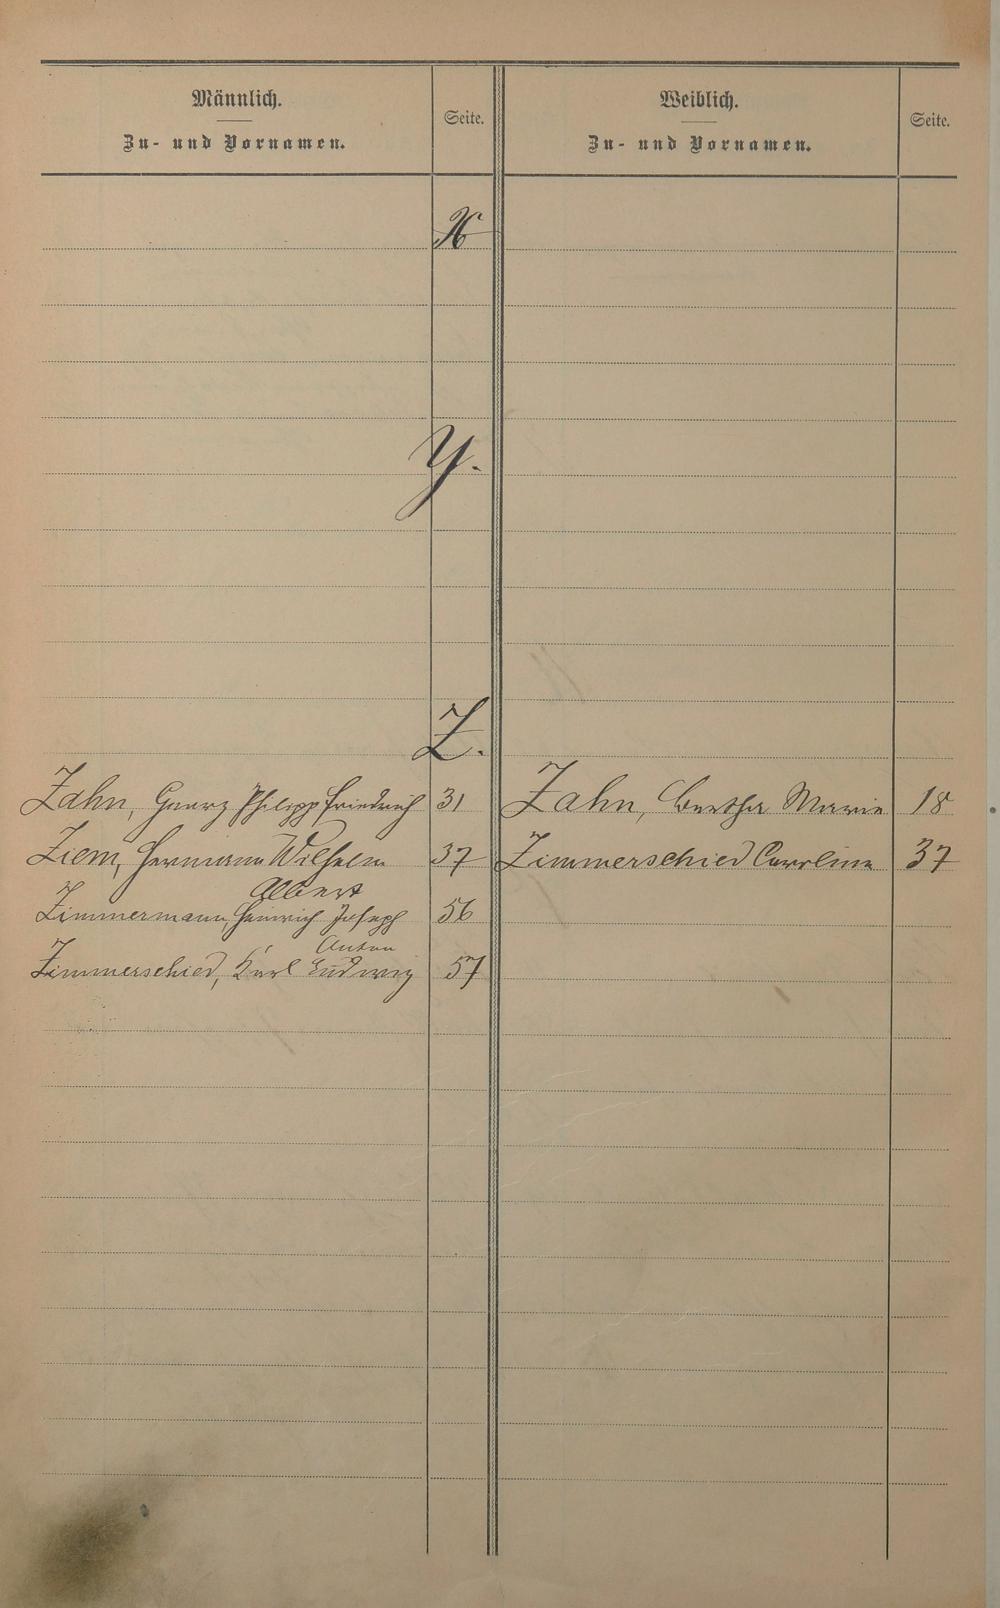 Männlich.
Zu- und Vornamen.
Seite.
Weiblich.
Zu- und Vornamen.
Seite.
X
Y.
Z.
Zahn, Georg Philipp Friedrich 31
Zahn, Bertha Marie 18
Ziem, Hermann Wilhelm 37
Zimmerschied Caroline 37
Albert
Zimmermann, Heinrich Joseph 56
Anton
Zimmerschied, Karl Ludwig 57